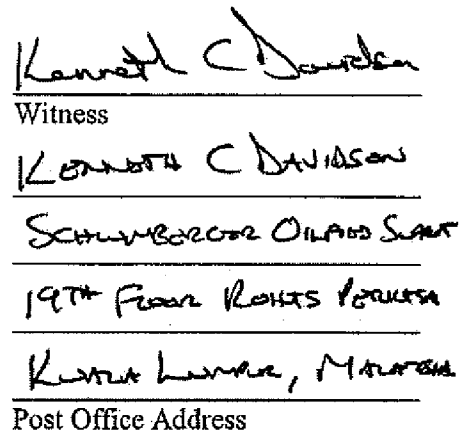 Kenneth C Davidson
Witness
KENNETH C DAVIDSON
SCHLUMBERGER OILFIELD
19TH FLOOR ROHAS PERKASA
KUALA LUMPUR, MALAYSIA
Post Office Address